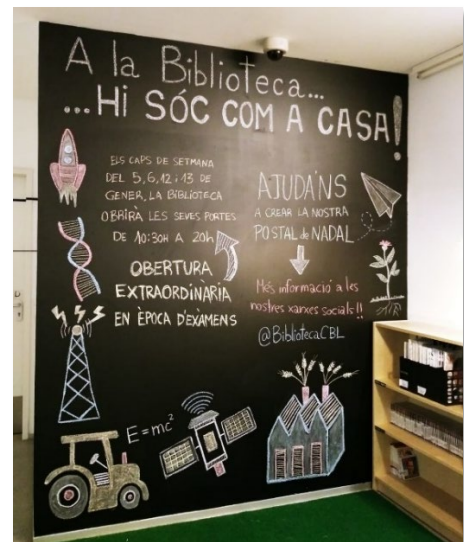 A la Biblioteca...
...Hi SÓC COM A CASA!
ELS CAPS DE SETMANA
DEL 5, 6, 12 i 13 DE
GENER, LA BIBLIOTECA
OBRIRÀ LES SEVES PORTES
DE 10:30H A 20h
OBERTURA
EXTRAORDINÀRIA
EN ÈPOCA D'EXÀMENS
AJUDA'NS
A CREAR LA NOSTRA
POSTAL de NADAL
Més informació a les
nostres xarxes socials!!
@BibliotecaCBL
E=mc²